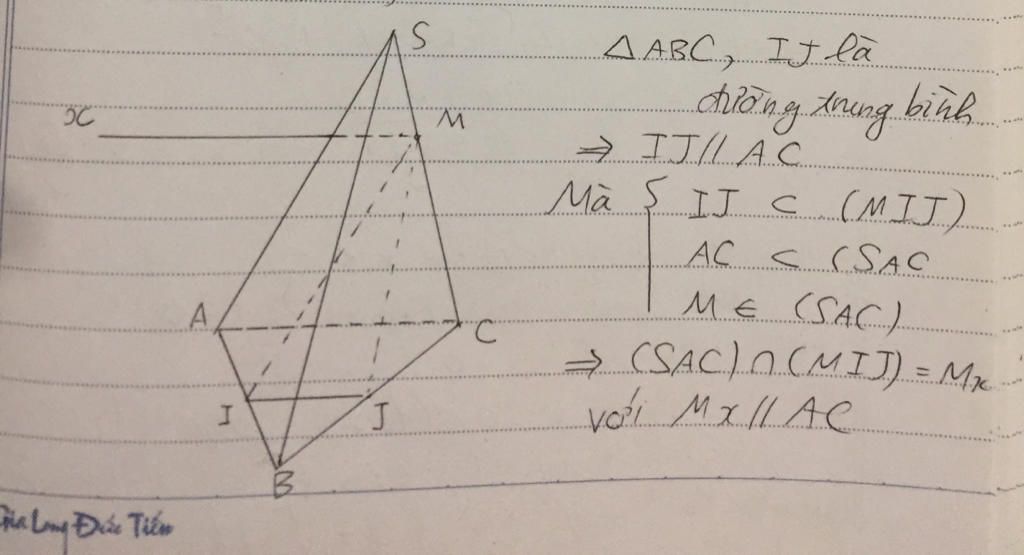 S
x
M
A
C
I
J
B
△ABC, IJ là
đường trung bình
⇒ IJ // AC
Mà { IJ ⊂ (MIJ)
AC ⊂ (SAC
M ∈ (SAC)
⇒ (SAC) ∩ (MIJ) = Mx
với Mx // AC
Gia Long Đức Tiến